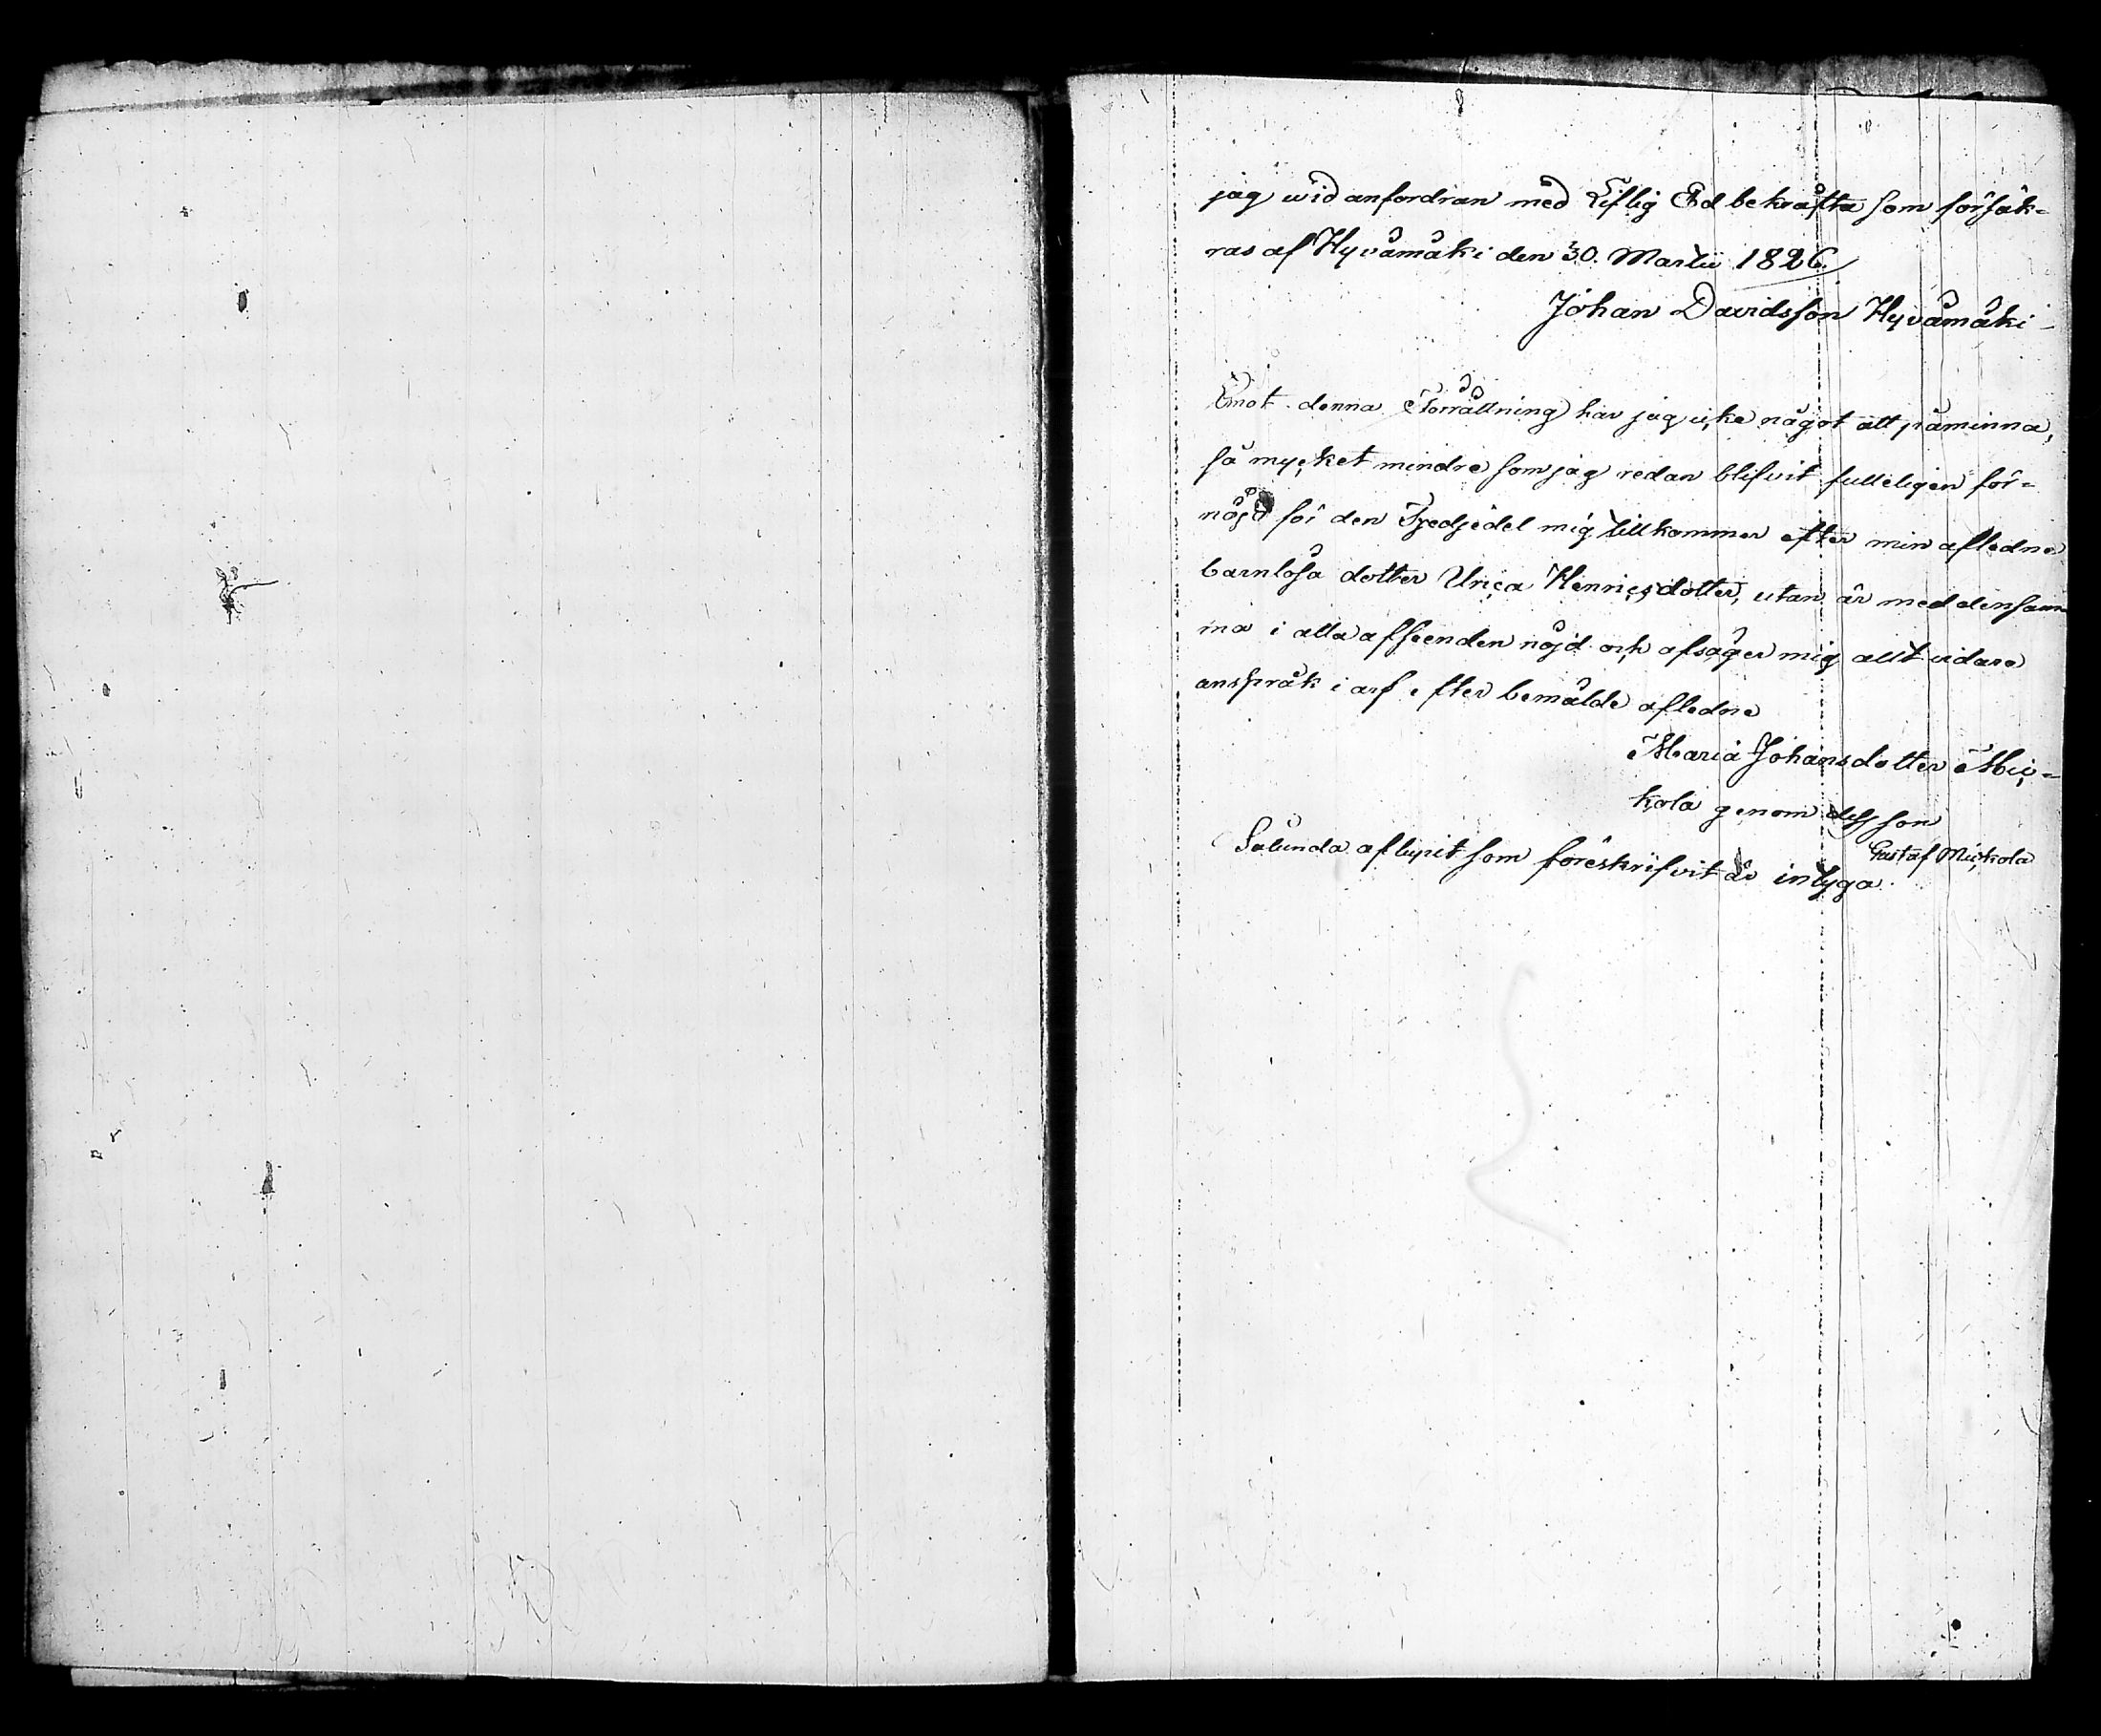 jag wid anfordran med Liflig Ed bekräfta som försäk=
ras af Hyvämäki den 30. Martii 1826.
Johan Davidsson Hyvämäki
Emot denna Förrättning har jag icke något att påminna,
så mycket mindre som jag redan blifvit fulleligen för=
nöjd för den Tjedjedel mig tillkommer efter min afledne
barnlösa dotter Ulrica Henricsdotter, utan är med densam
ma i alla afseenden nöjd och afsäger mig allt vidare
anspråk i arf efter bemälde afledne
Maria Johansdotter Mic=
kola genom dess son
Gustaf Mickola
Sålunda aflupit som föreskrifvit är intyga.